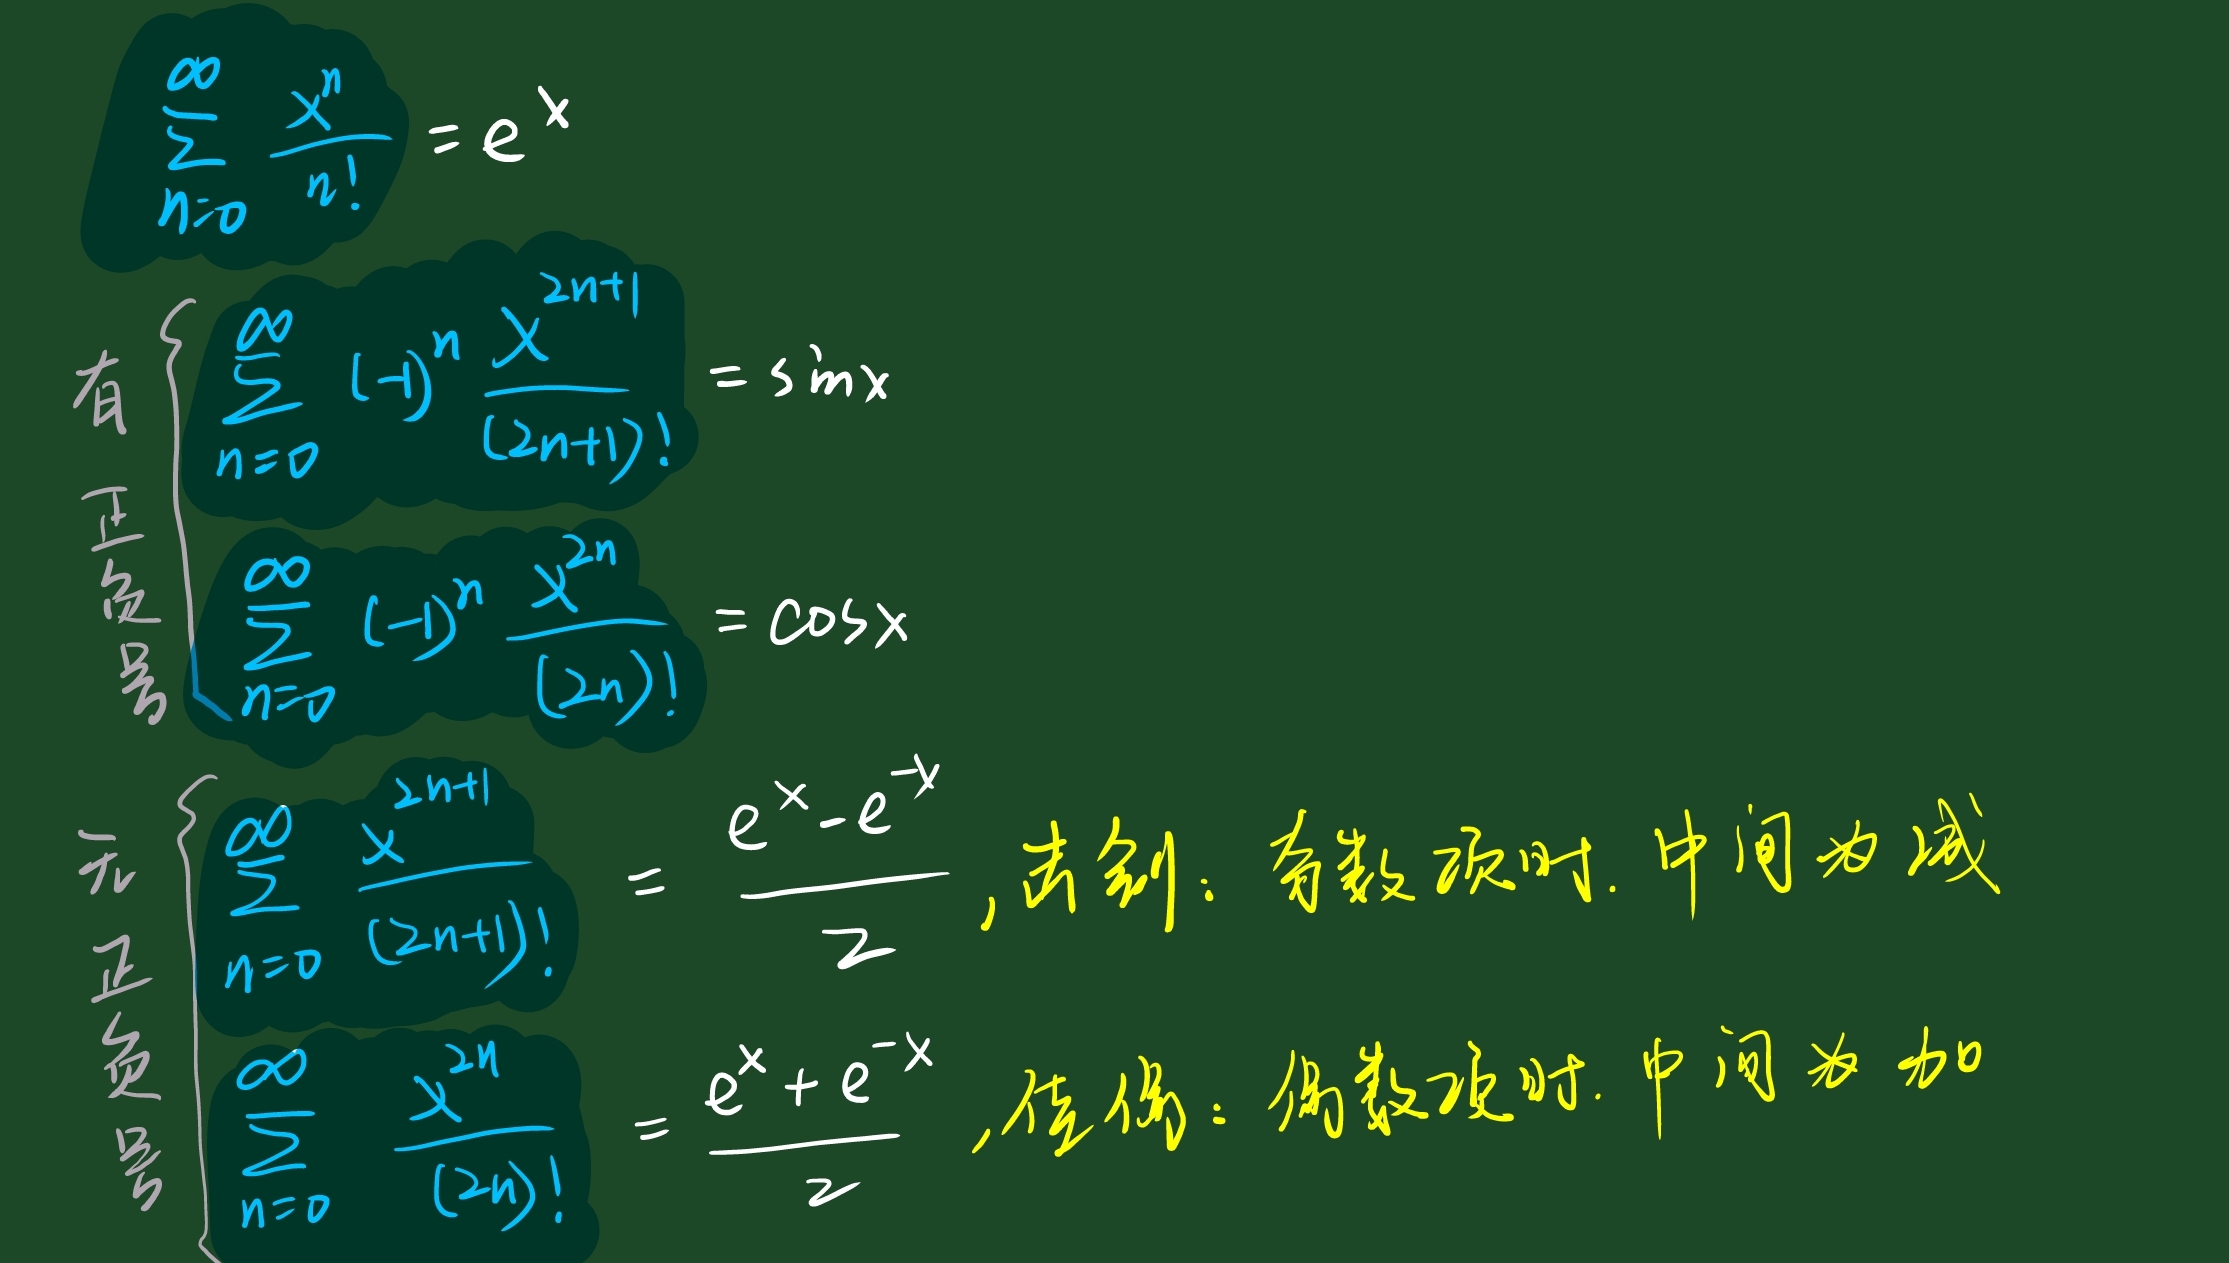 $\sum_{n=0}^{\infty} \frac{x^n}{n!} = e^x$
有正负号
$\sum_{n=0}^{\infty} (-1)^n \frac{x^{2n+1}}{(2n+1)!} = \sin x$
$\sum_{n=0}^{\infty} (-1)^n \frac{x^{2n}}{(2n)!} = \cos x$
无正负号
$\sum_{n=0}^{\infty} \frac{x^{2n+1}}{(2n+1)!} = \frac{e^x - e^{-x}}{2}$ ,击剑：奇数项时.中间为减
$\sum_{n=0}^{\infty} \frac{x^{2n}}{(2n)!} = \frac{e^x + e^{-x}}{2}$ ,佳偶：偶数项时.中间为加